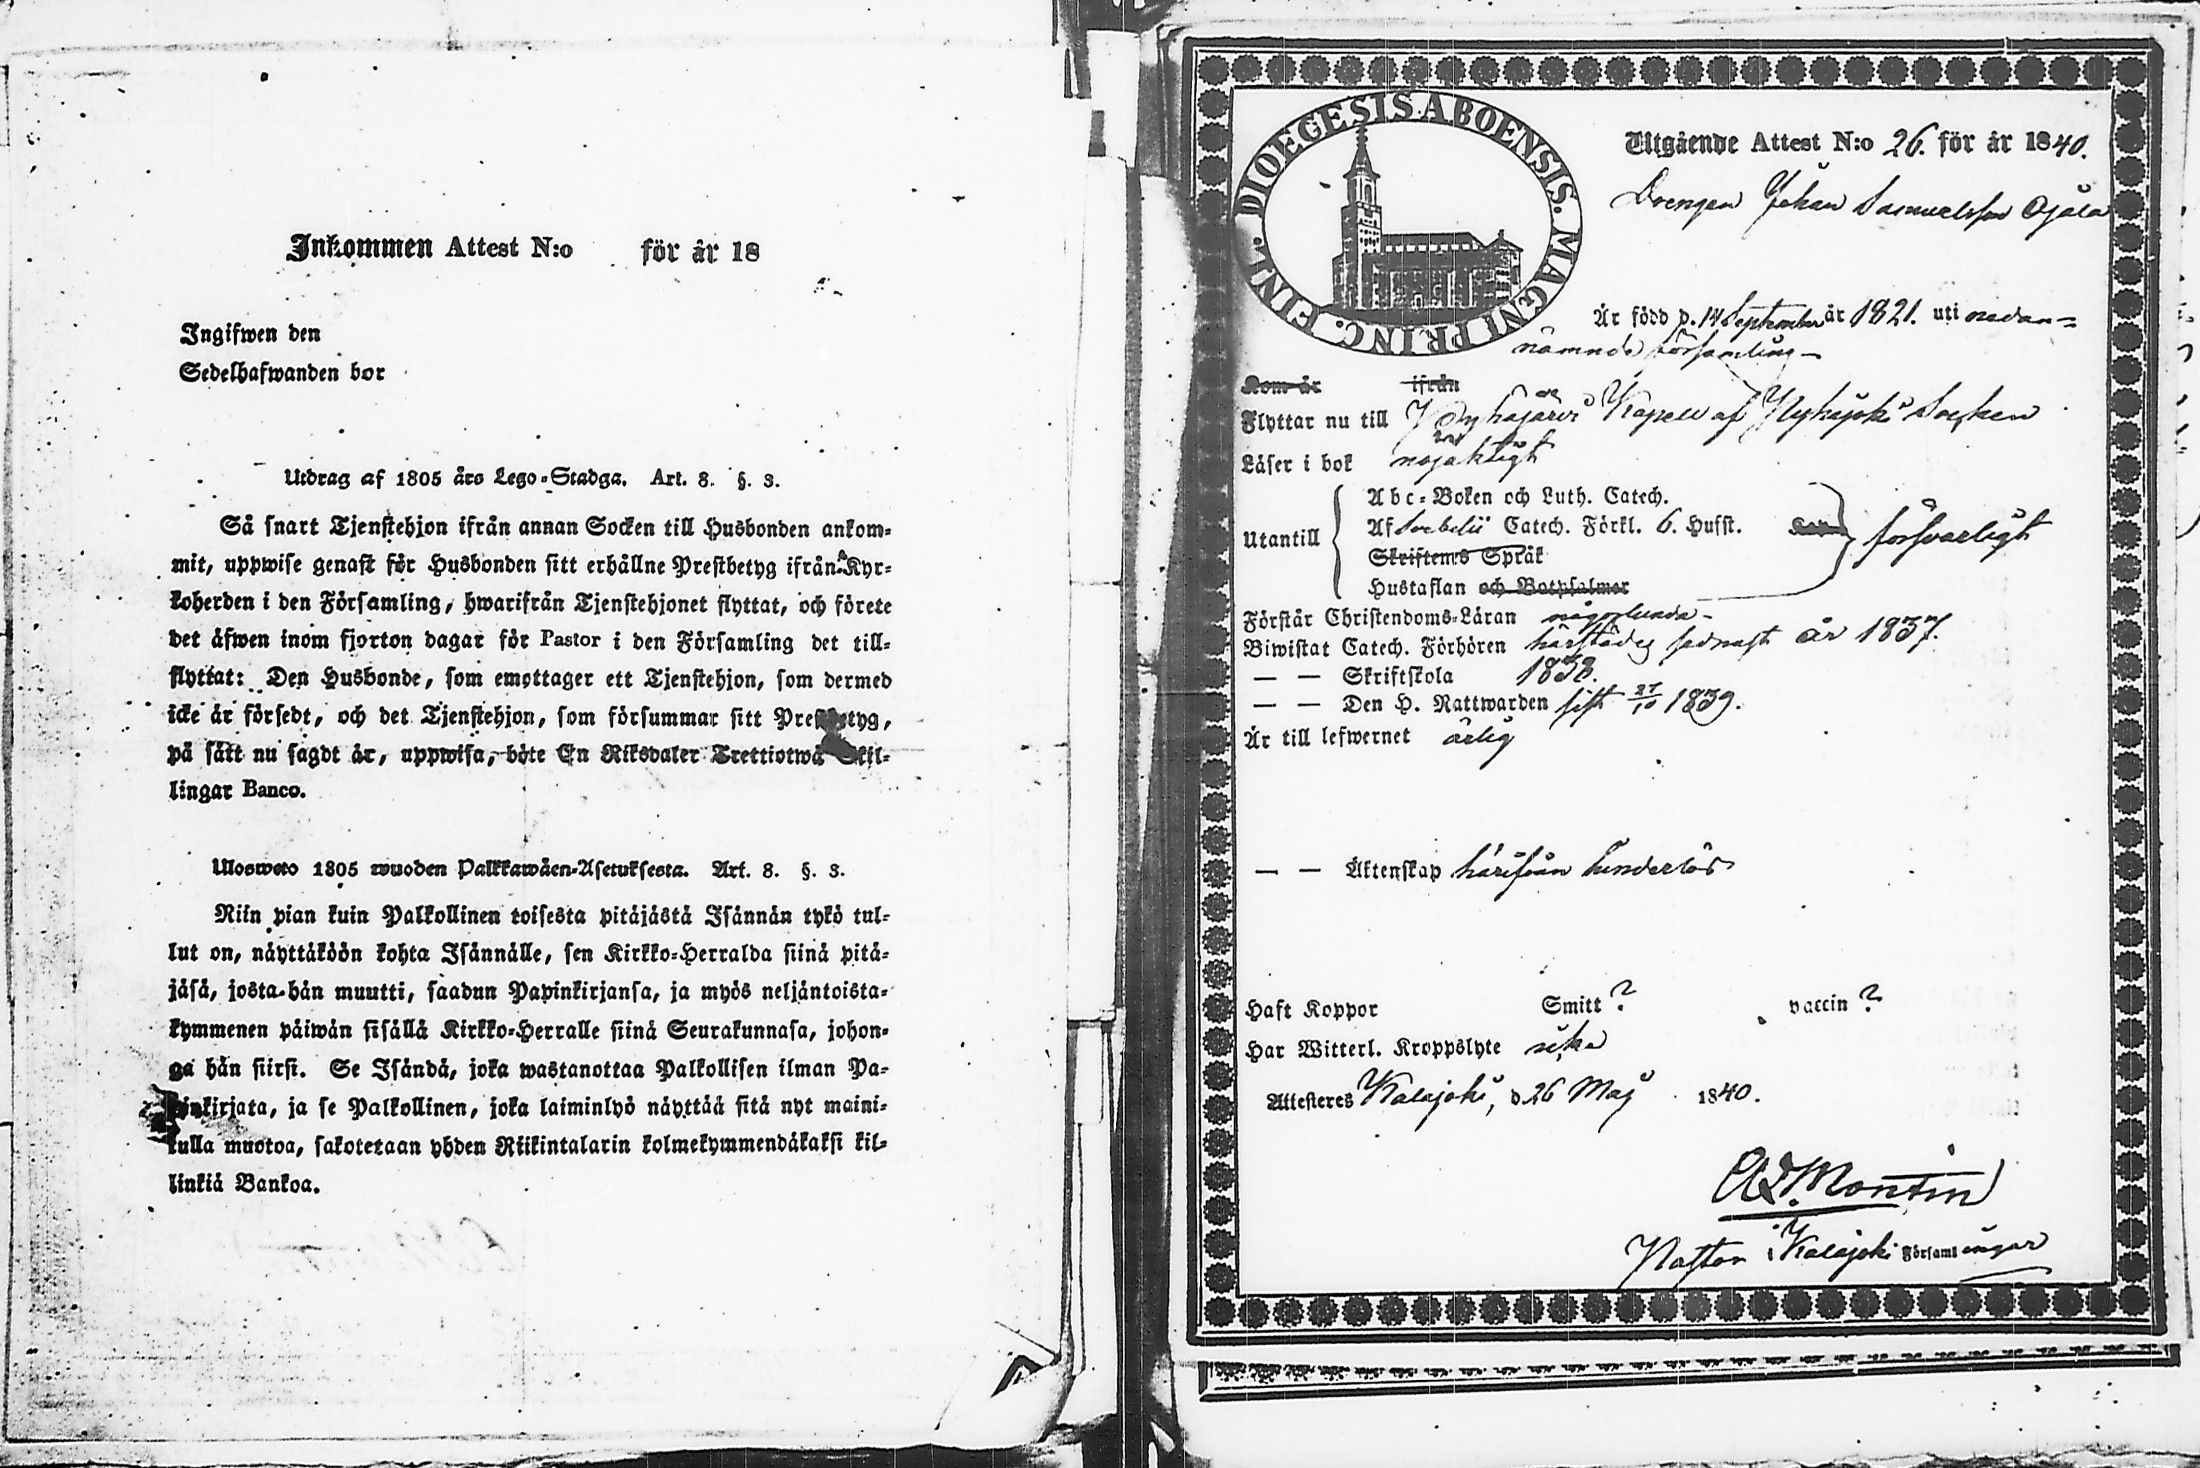 Inkommen Attest N:o för år 18
Ingifwen den
Sedelhafwanden bor
Utdrag af 1805 års Lego-Stadga. Art. 8. §. 3.
Så snart Tjenstehjon ifrån annan Socken till Husbonden ankom-
mit, uppwise genast för Husbonden sitt erhållne Prestbetyg ifrån Kyr-
koherden i den Församling, hwarifrån Tjenstehjonet flyttat, och förete
det äfwen inom fjorton dagar för Pastor i den Församling det till-
flyttat: Den Husbonde, som emottager ett Tjenstehjon, som dermed
icke är försedt, och det Tjenstehjon, som försummar sitt Prestbetyg,
på sätt nu sagdt är, uppwisa, böte En Riksdaler Trettiotwå Skil-
lingar Banco.
Ulosweto 1805 wuoden Palkkawäen-Asetuksesta. Art. 8. §. 3.
Niin pian kuin Palkollinen toisesta pitäjästä Isännän tykö tul-
lut on, näyttäköön kohta Isännälle, sen Kirkko-Herralda siinä pitä-
jäsä, josta hän muutti, saadun Papinkirjansa, ja myös neljäntoista-
kymmenen päiwän sisällä Kirkko-Herralle siinä Seurakunnasa, johon-
ga hän siirsi. Se Isändä, joka wastanottaa Palkollisen ilman Pa-
pinkirjata, ja se Palkollinen, joka laiminlyö näyttää sitä nyt maini-
tulla muotoa, sakotetaan yhden Riikintalarin kolmekymmendäkaksi kil-
linkiä Bankoa.
DIOECESIS ABOENSIS. MAGNI PRINC. FINL.
Utgående Attest N:o 26. för år 1840.
Drengen Johan Samuelsson Ojala
Är född d. 14 September år 1821. uti nedan=
nämnde församling
Kom år ifrån
Flyttar nu till Pyhäjärvi Kapell af Pyhäjoki Socken
Läser i bok nöjaktigt
Utantill
Abc-Boken och Luth. Catech.
Af Svebelii Catech. Förkl. 6. Hufst. försvarligt
Skriftens Språk
Hustaflan och Botpsalmer
Förstår Christendoms-Läran någorlunda
Biwistat Catech. Förhören härstädes sednast år 1837.
— — Skriftskola 1838.
— — Den H. Nattwarden sist 27/10 1839.
Är till lefwernet ärlig
— — Äktenskap härifrån hinderlös
Haft Koppor Smitt ? vaccin ?
Har Witterl. Kroppslyte icke
Attesteres Kalajoki, d 26 Maj 1840.
Montin
Pastor i Kalajoki Församlingar